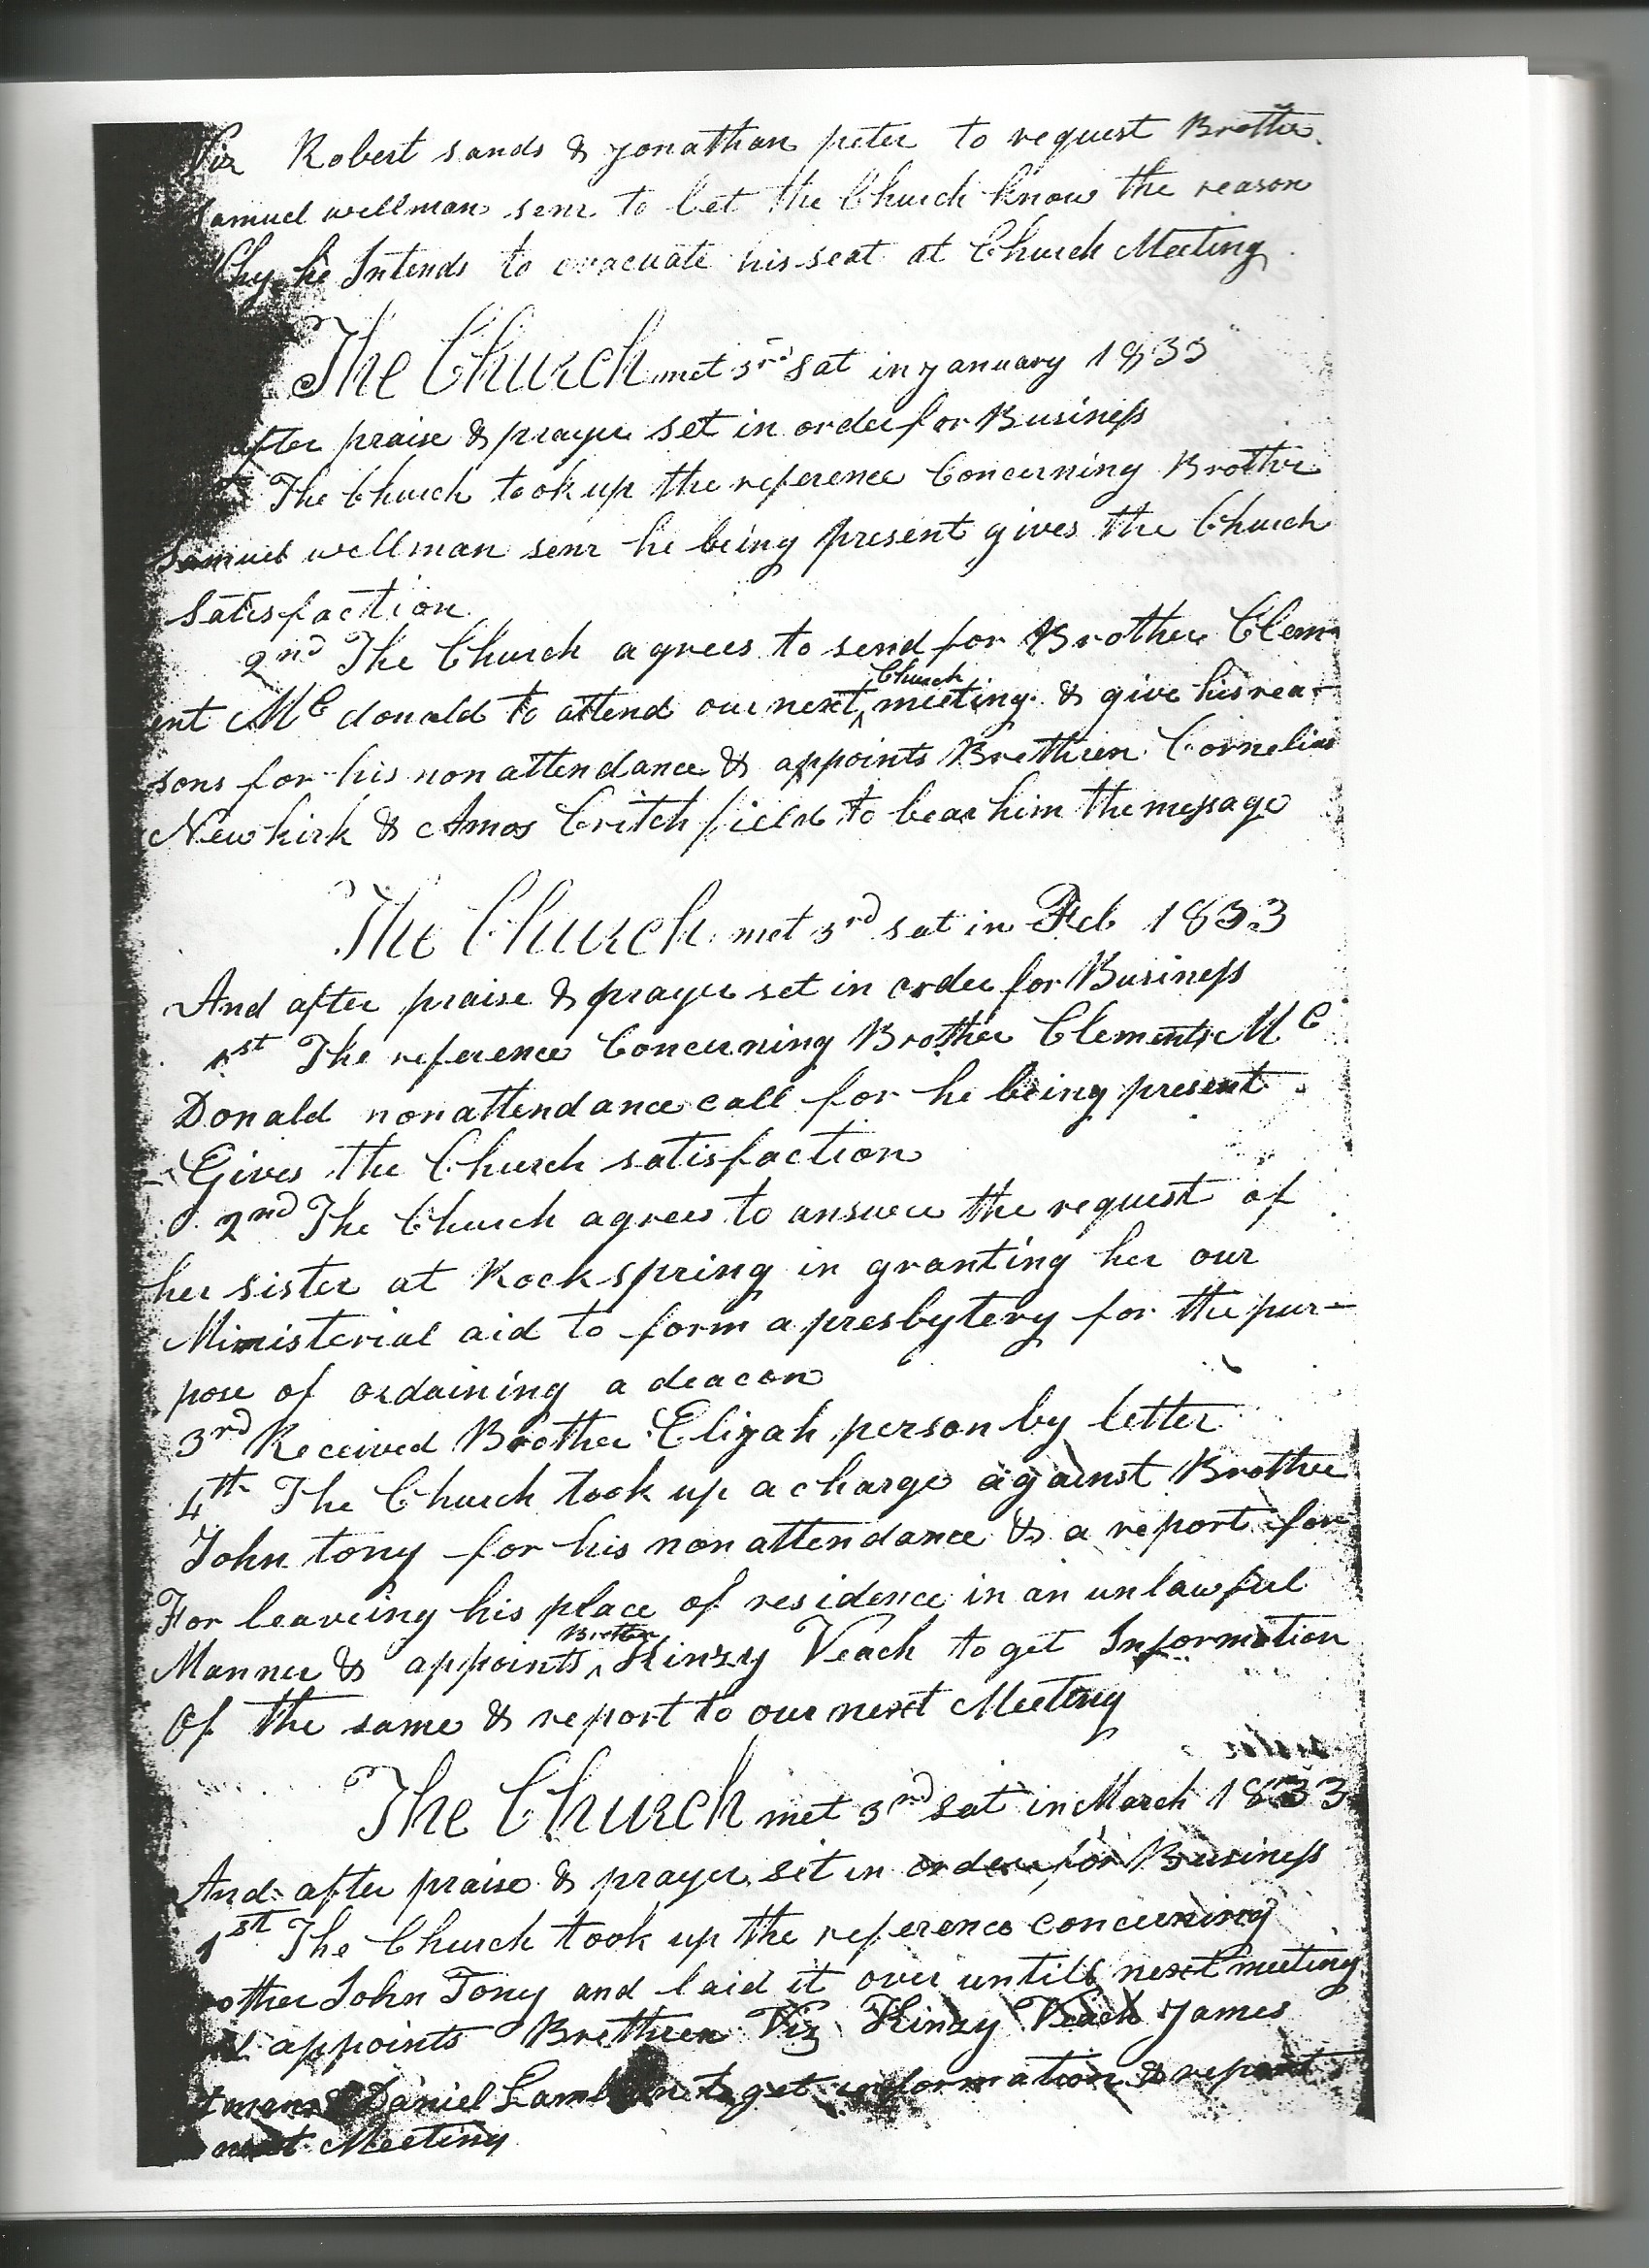 Viz Robert sands & Jonathan peter to request Brother
Samuel wellman senr to let the Church know the reason
Why he Intends to evacuate his seat at Church Meeting
The Church met 3rd sat in January 1833
after praise & prayer set in order for Business
The Church took up the reference Concerning Brother
Samuel wellman senr he being present gives the Church
Satisfaction
2nd The Church agrees to send for Brother Clem
ent Mc donald to attend our next Church meeting & give his rea-
sons for his nonattendance & appoints Brethren Cornelius
Newkirk & Amos Critchfield to bear him the message
The Church met 3rd sat in Feb 1833
And after praise & prayer set in order for Business
1st The reference Concerning Brother Clement Mc
Donald nonattendance call for he being present
Gives the Church satisfaction
2nd The Church agrees to answer the request of
her sister at Rock spring in granting her our
Ministerial aid to form a presbytery for the pur-
pose of ordaining a deacon
3rd Received Brother Elijah person by letter
4th The Church took up a charge against Brother
John tony for his nonattendance & a report for
For leaveing his place of residence in an unlawful
Manner & appoints Brother Kinzy Veach to get Information
Of the same & report to our next Meeting
The Church met 3rd sat in March 1833
And after praise & prayer set in order for Business
1st The Church took up the reference concerning
other John Tony and laid it over untill next meeting
& appoints Brethren Viz Kinzy Veach James
& Daniel to get information & report
next Meeting